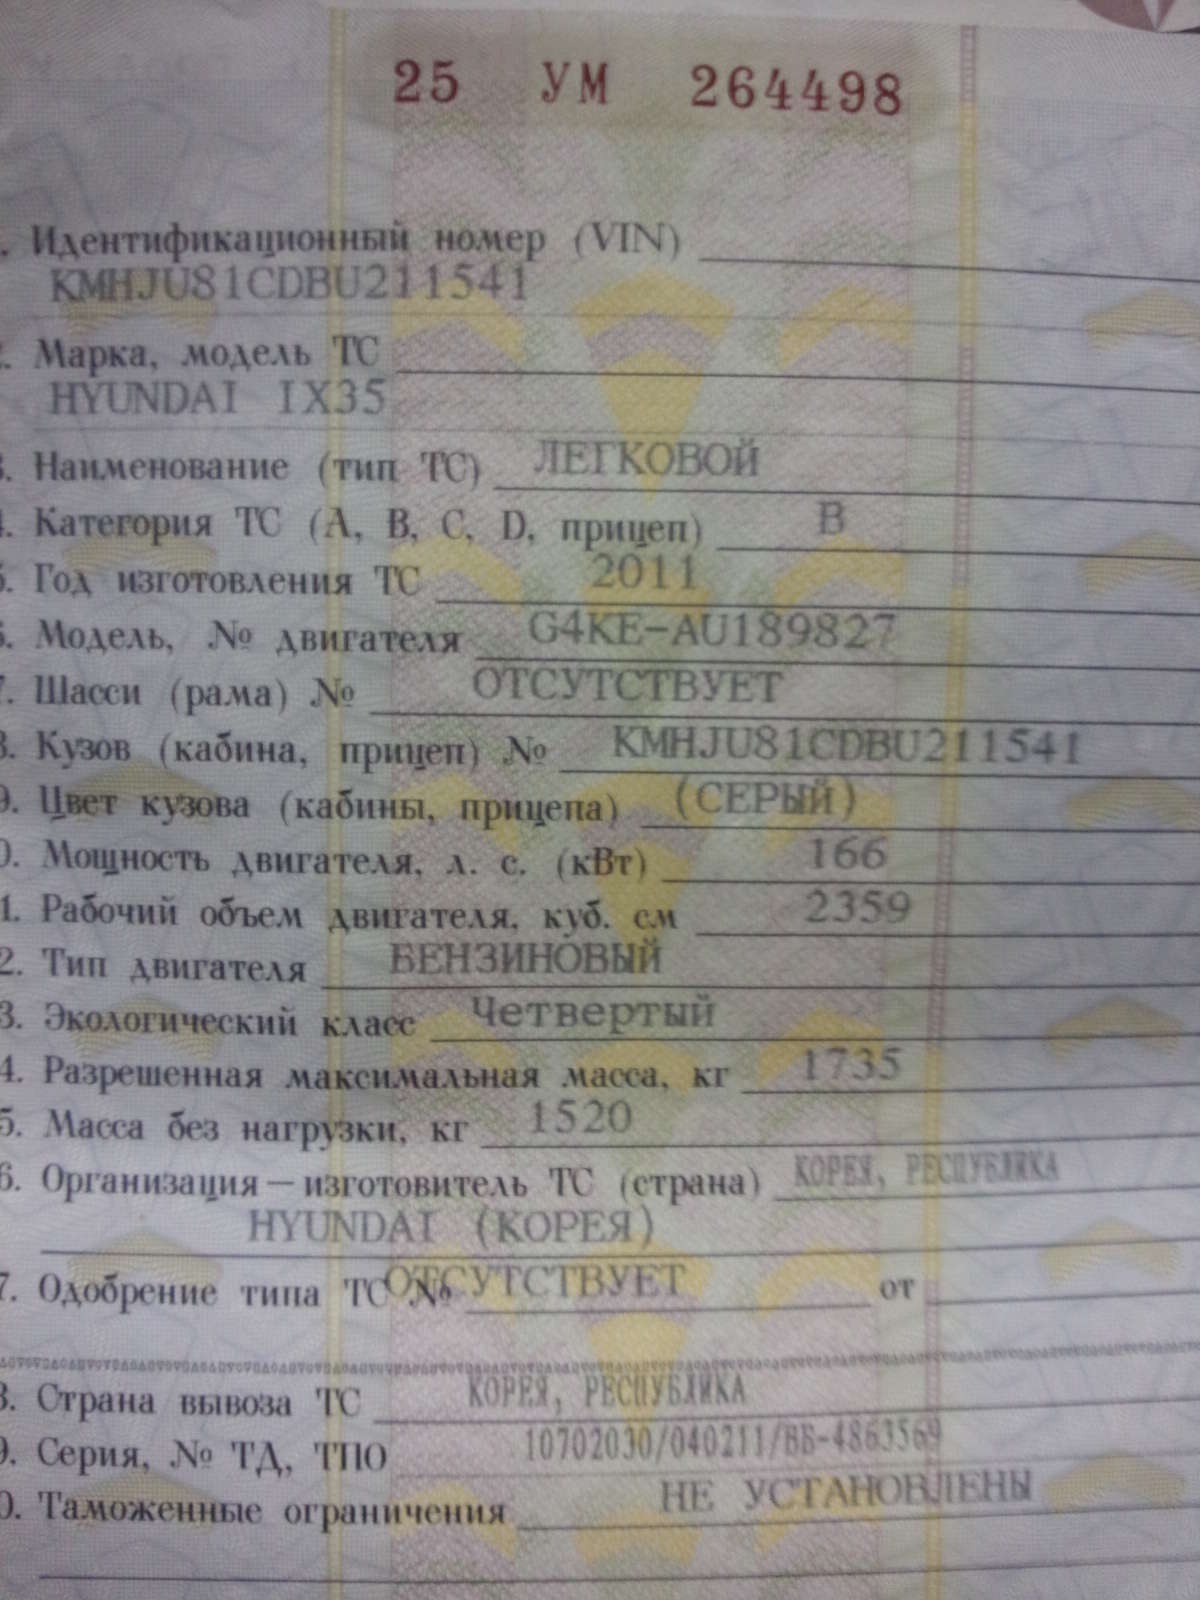 25 УМ 264498
. Идентификационный номер (VIN)
KMHJU81CDBU211541
2. Марка, модель ТС
HYUNDAI IX35
3. Наименование (тип ТС) ЛЕГКОВОЙ
4. Категория ТС (А, В, С, D, прицеп) В
5. Год изготовления ТС 2011
6. Модель, № двигателя G4KE-AU189827
7. Шасси (рама) № ОТСУТСТВУЕТ
8. Кузов (кабина, прицеп) № KMHJU81CDBU211541
9. Цвет кузова (кабины, прицепа) (СЕРЫЙ)
0. Мощность двигателя, л. с. (кВт) 166
1. Рабочий объем двигателя, куб. см 2359
2. Тип двигателя БЕНЗИНОВЫЙ
3. Экологический класс Четвертый
4. Разрешенная максимальная масса, кг 1735
5. Масса без нагрузки, кг 1520
6. Организация—изготовитель ТС (страна) КОРЕЯ, РЕСПУБЛИКА
HYUNDAI (КОРЕЯ)
7. Одобрение типа ТС № ОТСУТСТВУЕТ от
8. Страна вывоза ТС КОРЕЯ, РЕСПУБЛИКА
9. Серия, № ТД, ТПО 10702030/040211/ВБ-4863569
0. Таможенные ограничения НЕ УСТАНОВЛЕНЫ